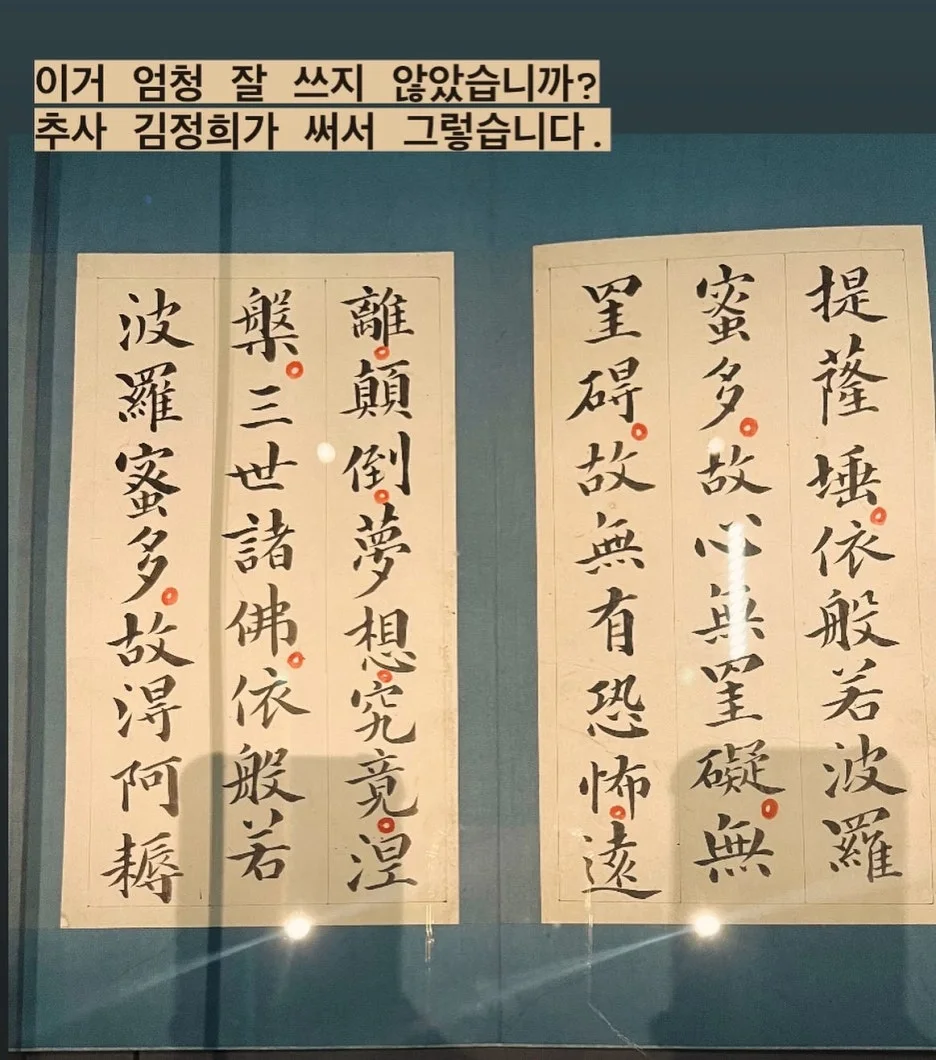 이거 엄청 잘 쓰지 않았습니까?
추사 김정희가 써서 그렇습니다.
提薩埵依般若波羅
蜜多故心無罣礙無
罣碍故無有恐怖遠
離顛倒夢想究竟涅
槃三世諸佛依般若
波羅蜜多故淂阿耨